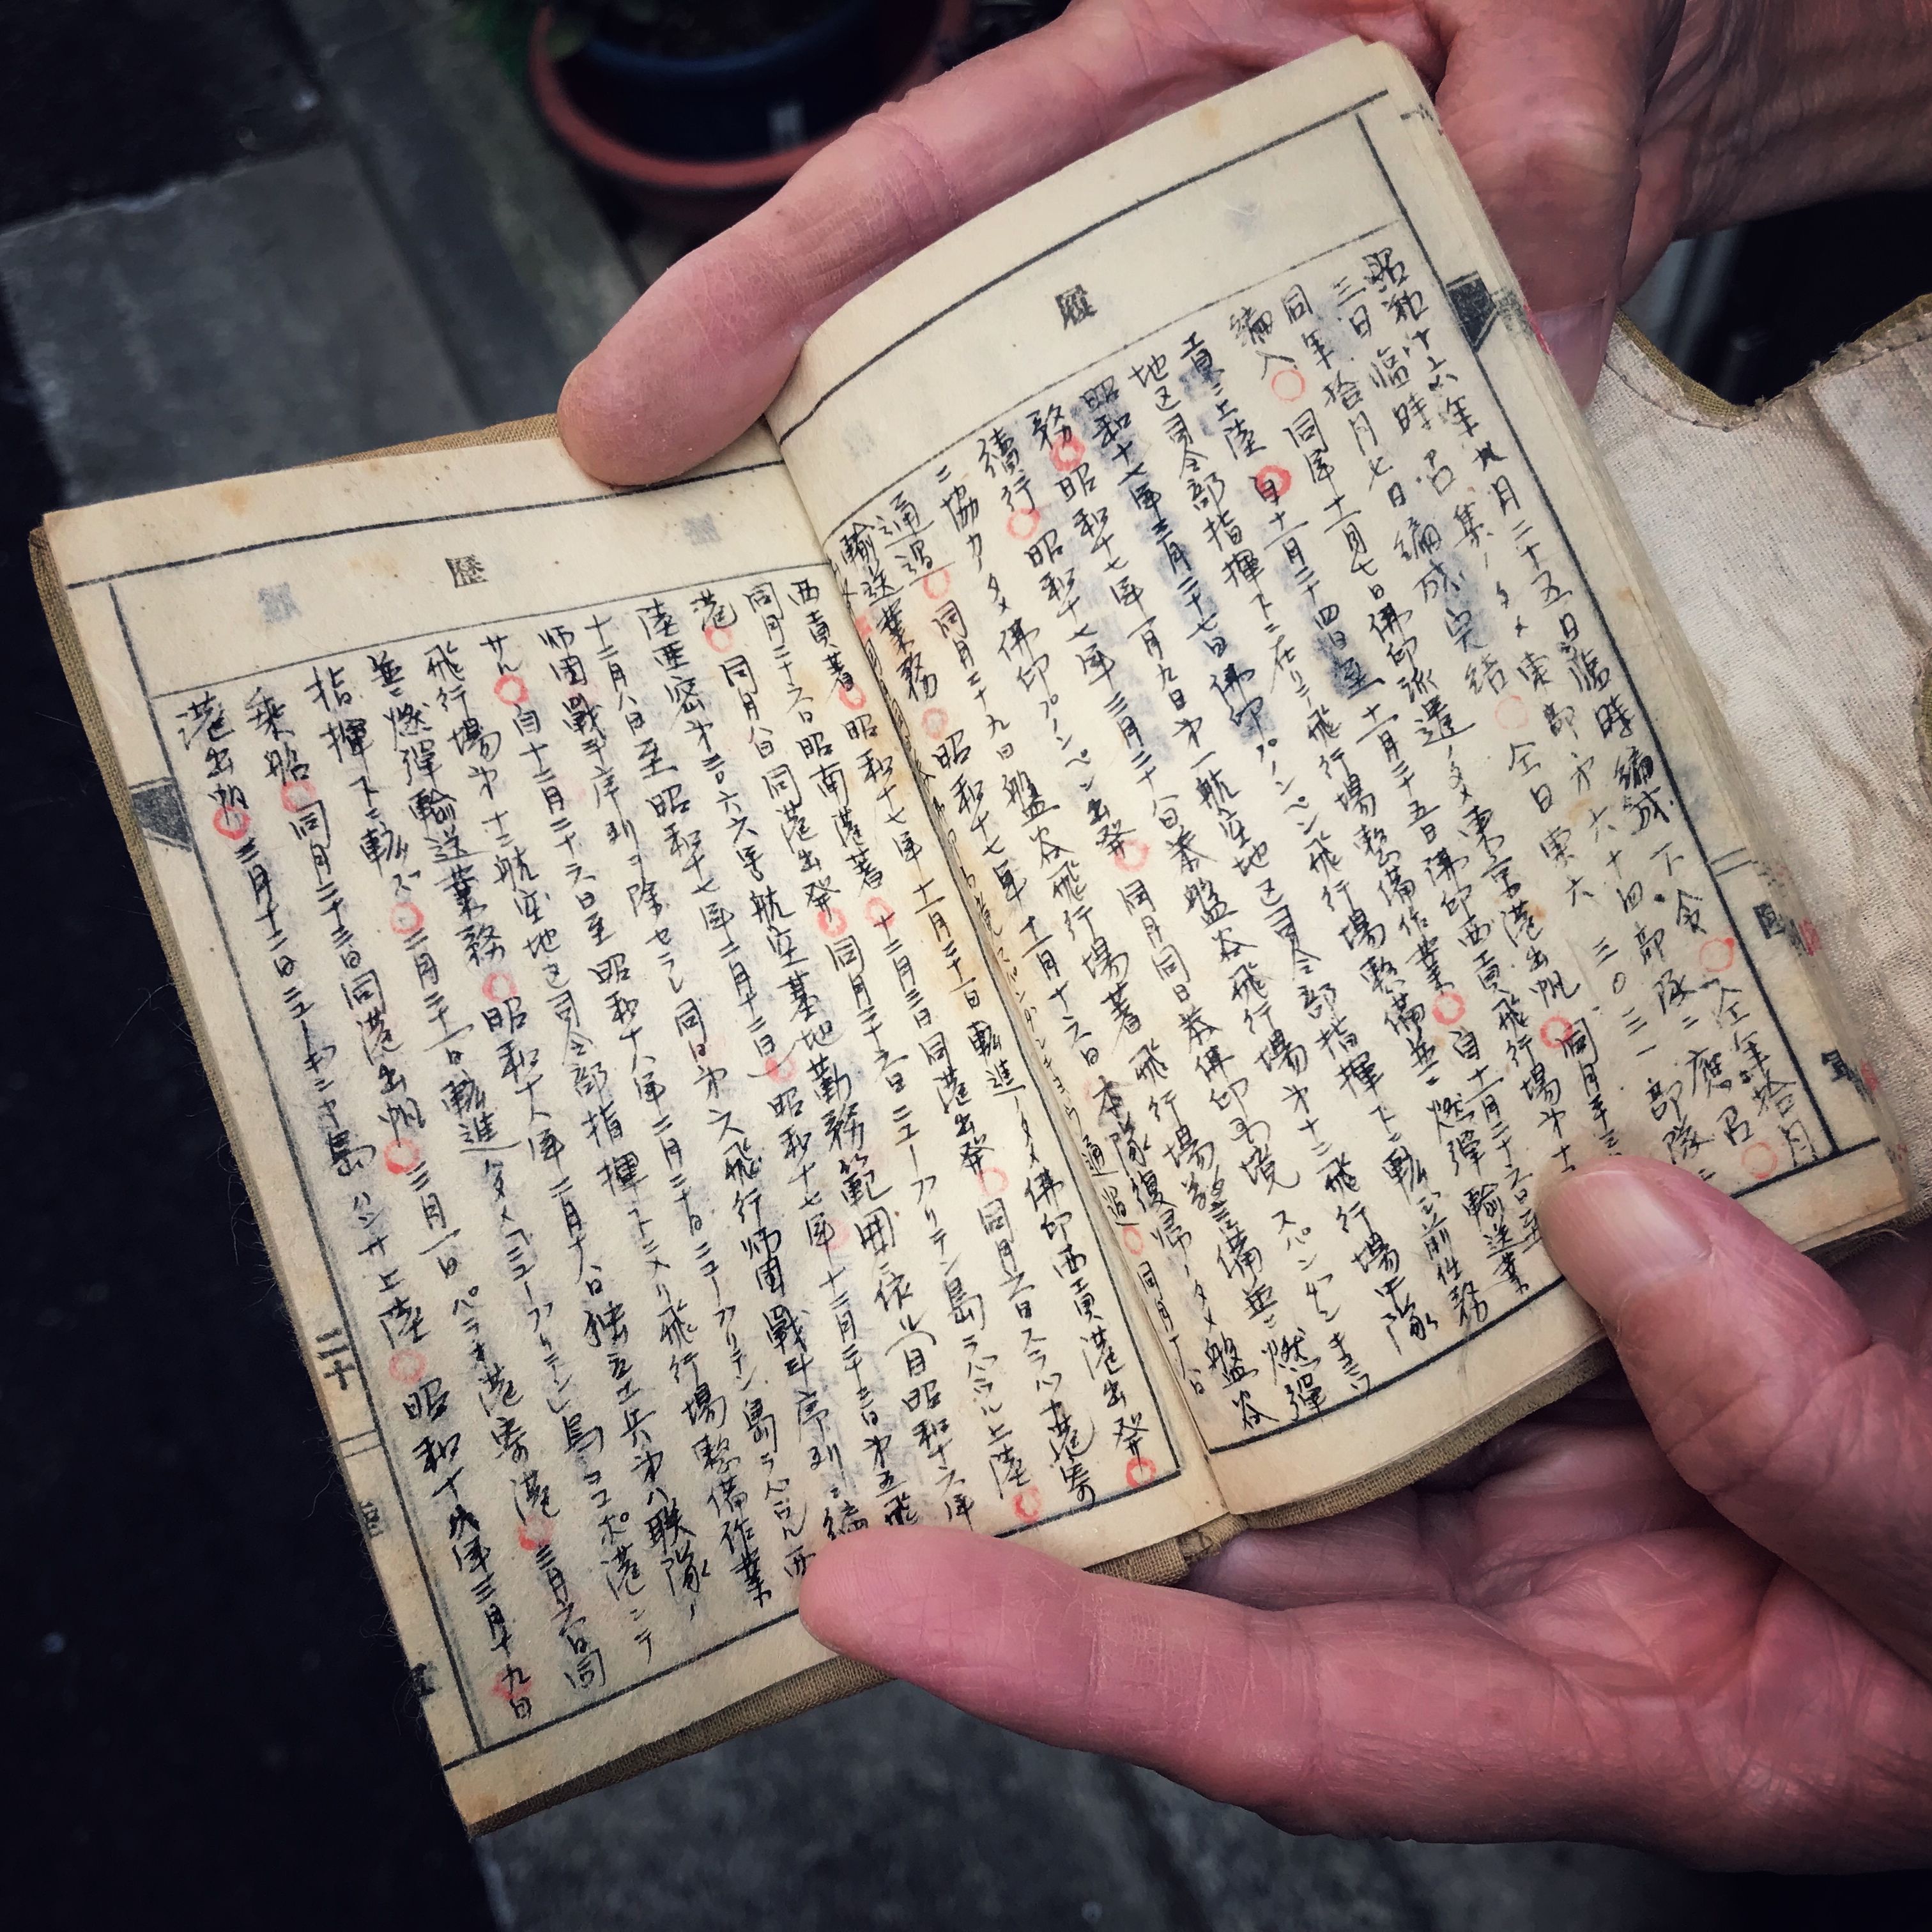 履
昭和十六年九月二十五日臨時編成下令 仝年拾月
三日臨時召集ノタメ東部第六十四部隊ニ應召
同年拾月七日編成完結 仝日東六三〇三一部隊ニ
編入 同年十一月七日佛印派遣ノタメ東京港出帆 同月
貢ニ上陸 自十一月二十四日至十一月二十五日佛印西貢飛行場第十
地区司令部指揮下ニ在リテ飛行場整備作業 自十一月二十六日至
昭和十七年三月二十七日佛印プノンペン飛行場整備並ニ燃彈輸送業
務 昭和十七年一月九日第一航空地区司令部指揮下ニ轉ジ前任務
續行 昭和十七年三月二十八日泰盤谷飛行場第十二飛行場中隊
ニ協力ノタメ佛印プノンペン出発 同月同日泰佛印国境スバンガンチョラウ
通過 同月二十九日盤谷飛行場著 飛行場警備並ニ燃彈
輸送業務 昭和十七年十一月十六日本隊復帰ノタメ盤谷
通過 同月十八日
歴
西貢著 昭和十七年十一月二十一日轉進ノタメ佛印西貢港出発
同月二十六日昭南港著 十二月三日同港出発 同月六日スラバヤ港寄
港 同月八日同港出発 同月二十六日ニューブリテン島ラバウル上陸
陸亜密第二〇六六号航空基地勤務範囲ニ依ル(自昭和十六年
十二月八日至昭和十七年二月十二日) 昭和十七年十二月二十三日第五飛
師團戰斗序列ヨリ除セラレ同日第六飛行師團戰斗序列ニ編
サル 自十二月二十六日至昭和十八年二月二十日ニューブリテン島ラバウル西
飛行場第十二航空地区司令部指揮下ニ入リ飛行場整備作業
並ニ燃彈輸送業務 昭和十八年二月十八日独立工兵第八聯隊ノ
指揮下ニ轉ズ 二月二十一日轉進ノタメニューブリテン島ココポ港ニテ
乗船 同月二十三日同港出帆 三月一日パラオ港寄港 三月六日同
港出帆 三月十二日ニューギニヤ島ハンサ上陸 昭和十九年三月十九日
二十